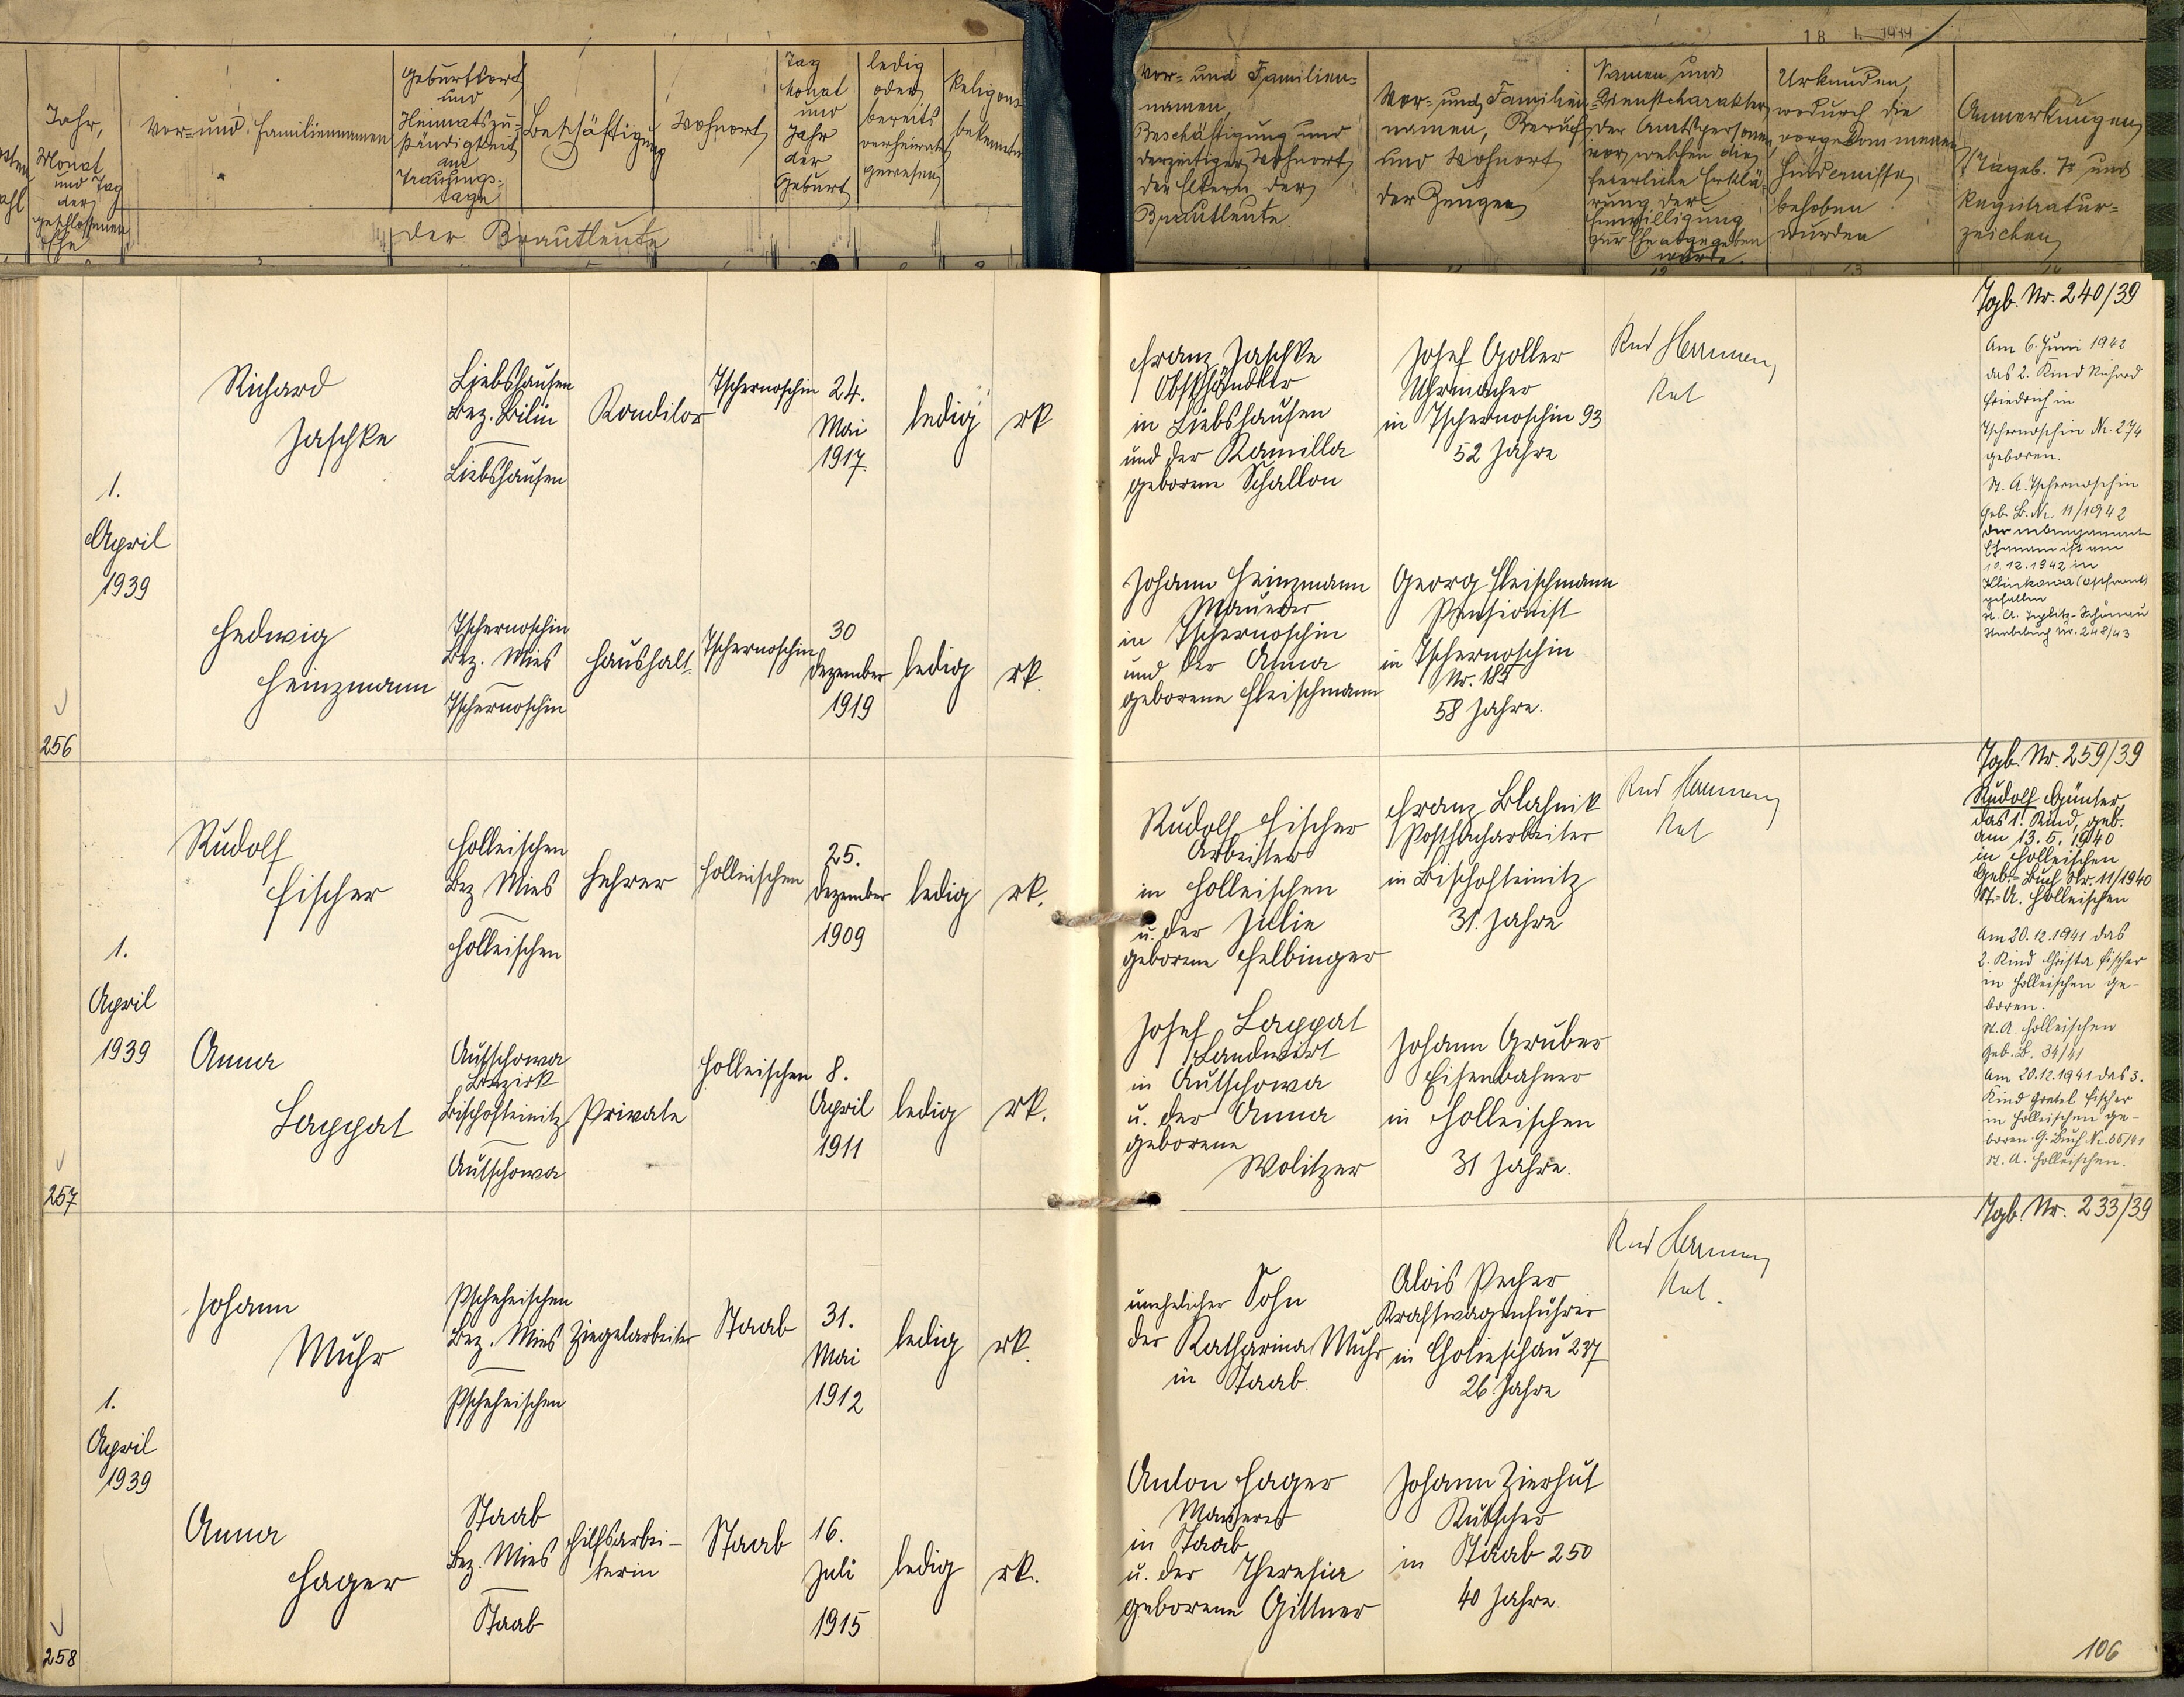 18. I. 1939
Jahr,
Monat
und Tag
der
geschlossenen
Ehe
Vor- und Familiennamen
Geburtsort
und
Heimatszu-
ständigkeit
am
Trauungs-
tage
Beschäftigung
Wohnort
Tag
Monat
und
Jahr
der
Geburt
ledig
oder
bereits
verheiratet
gewesen
Religions
bekenntnis
der Brautleute
Vor- und Familien-
namen,
Beschäftigung und
derzeitiger Wohnort
der Eltern der
Brautleute
Vor- und Familien-
namen, Beruf
und Wohnort
der Zeugen
Namen und
Dienstcharakter
der Amtspersonen
vor welchen die
feierliche Erklä-
rung der
Einwilligung
zur Ehe abgegeben
wurde.
Urkunden,
wodurch die
vorgekommenen
Hindernisse
behoben
wurden
Anmerkungen
(Tageb. Nr und
Registratur-
zeichen
256
1.
April
1939
Richard
Jaschke
Liebshausen
Bez. Bilin
Liebshausen
Konditor
Tschernoschin
24.
Mai
1917.
ledig
rk
Franz Jaschke
Obsthändler
in Liebshausen
und der Kamilla
geborene Schallon
Josef Goller
Uhrmacher
in Tschernoschin 93
52 Jahre
Rud Herrmann
Rat
Tgb. Nr. 240/39
Am 6. Juni 1942
das 2. Kind Richard
Friedrich in
Tschernoschin Nr. 274
geboren.
St. A. Tschernoschin
Geb. B. Nr. 11/1942
Der nebengenannte
Ehemann ist am
10.12.1942 in
(Ostfront)
gefallen
St. A. Teplitz-Schönau
Sterbebuch Nr. 248/43
Hedwig
Heinzmann
Tschernoschin
Bez. Mies
Tschernoschin
Haushalt.
Tschernoschin
30
Dezember
1919
ledig
rk.
Johann Heinzmann
Maurer
in Tschernoschin
und der Anna
geborene Fleischmann
Georg Fleischmann
Pensionist
in Tschernoschin
Nr. 182
58 Jahre.
257
1.
April
1939
Rudolf
Fischer
Holleischen
Bez Mies
Holleischen
Lehrer
Holleischen
25.
Dezember
1909
ledig
rk.
Rudolf Fischer
Arbeiter
in Holleischen
u. der Julie
geborene Helbinger
Franz Blahnik
Postfacharbeiter
in Bischofteinitz
31. Jahre
Rud Herrmann
Rat
Tgb. Nr. 259/39
Rudolf Günter,
das 1. Kind, geb.
am 13.5.1940
in Holleischen
Geb.-Buch Nr. 11/1940
St.-A. Holleischen
Am 20.12.1941 das
2. Kind Christa Fischer
in Holleischen ge-
boren.
St. A. Holleischen
Geb. B. 34/41
Am 20.12.1941 das 3.
Kind Gretel Fischer
in Holleischen ge-
boren. G. Buch Nr. 35/41
St. A. Holleischen.
Anna
Lappat
Autschowa
Bezirk
Bischofteinitz
Autschowa
Private
Holleischen
8.
April
1911
ledig
rk.
Josef Lappat
Landwirt
in Autschowa
u. der Anna
geborene
Wolitzer
Johann Gruber
Eisenbahner
in Holleischen
31 Jahre.
258
1.
April
1939
Johann
Muhr
Pscheheischen
Bez. Mies
Pscheheischen
Ziegelarbeiter
Staab
31.
Mai
1912
ledig
rk.
unehelicher Sohn
der Katharina Muhr
in Staab.
Alois Pecher
Kraftwagenführer
in Chotieschau 237
26 Jahre
Rud Herrmann
Rat.
Tgb. Nr. 233/39
Anna
Hager
Staab
Bez. Mies
Staab
Hilfsarbei-
terin
Staab
16.
Juli
1915
ledig
rk.
Anton Hager
Maurer
in Staab
u. der Theresia
geborene Gittner
Johann Zierhut
Kutscher
in Staab 250
40 Jahre
106